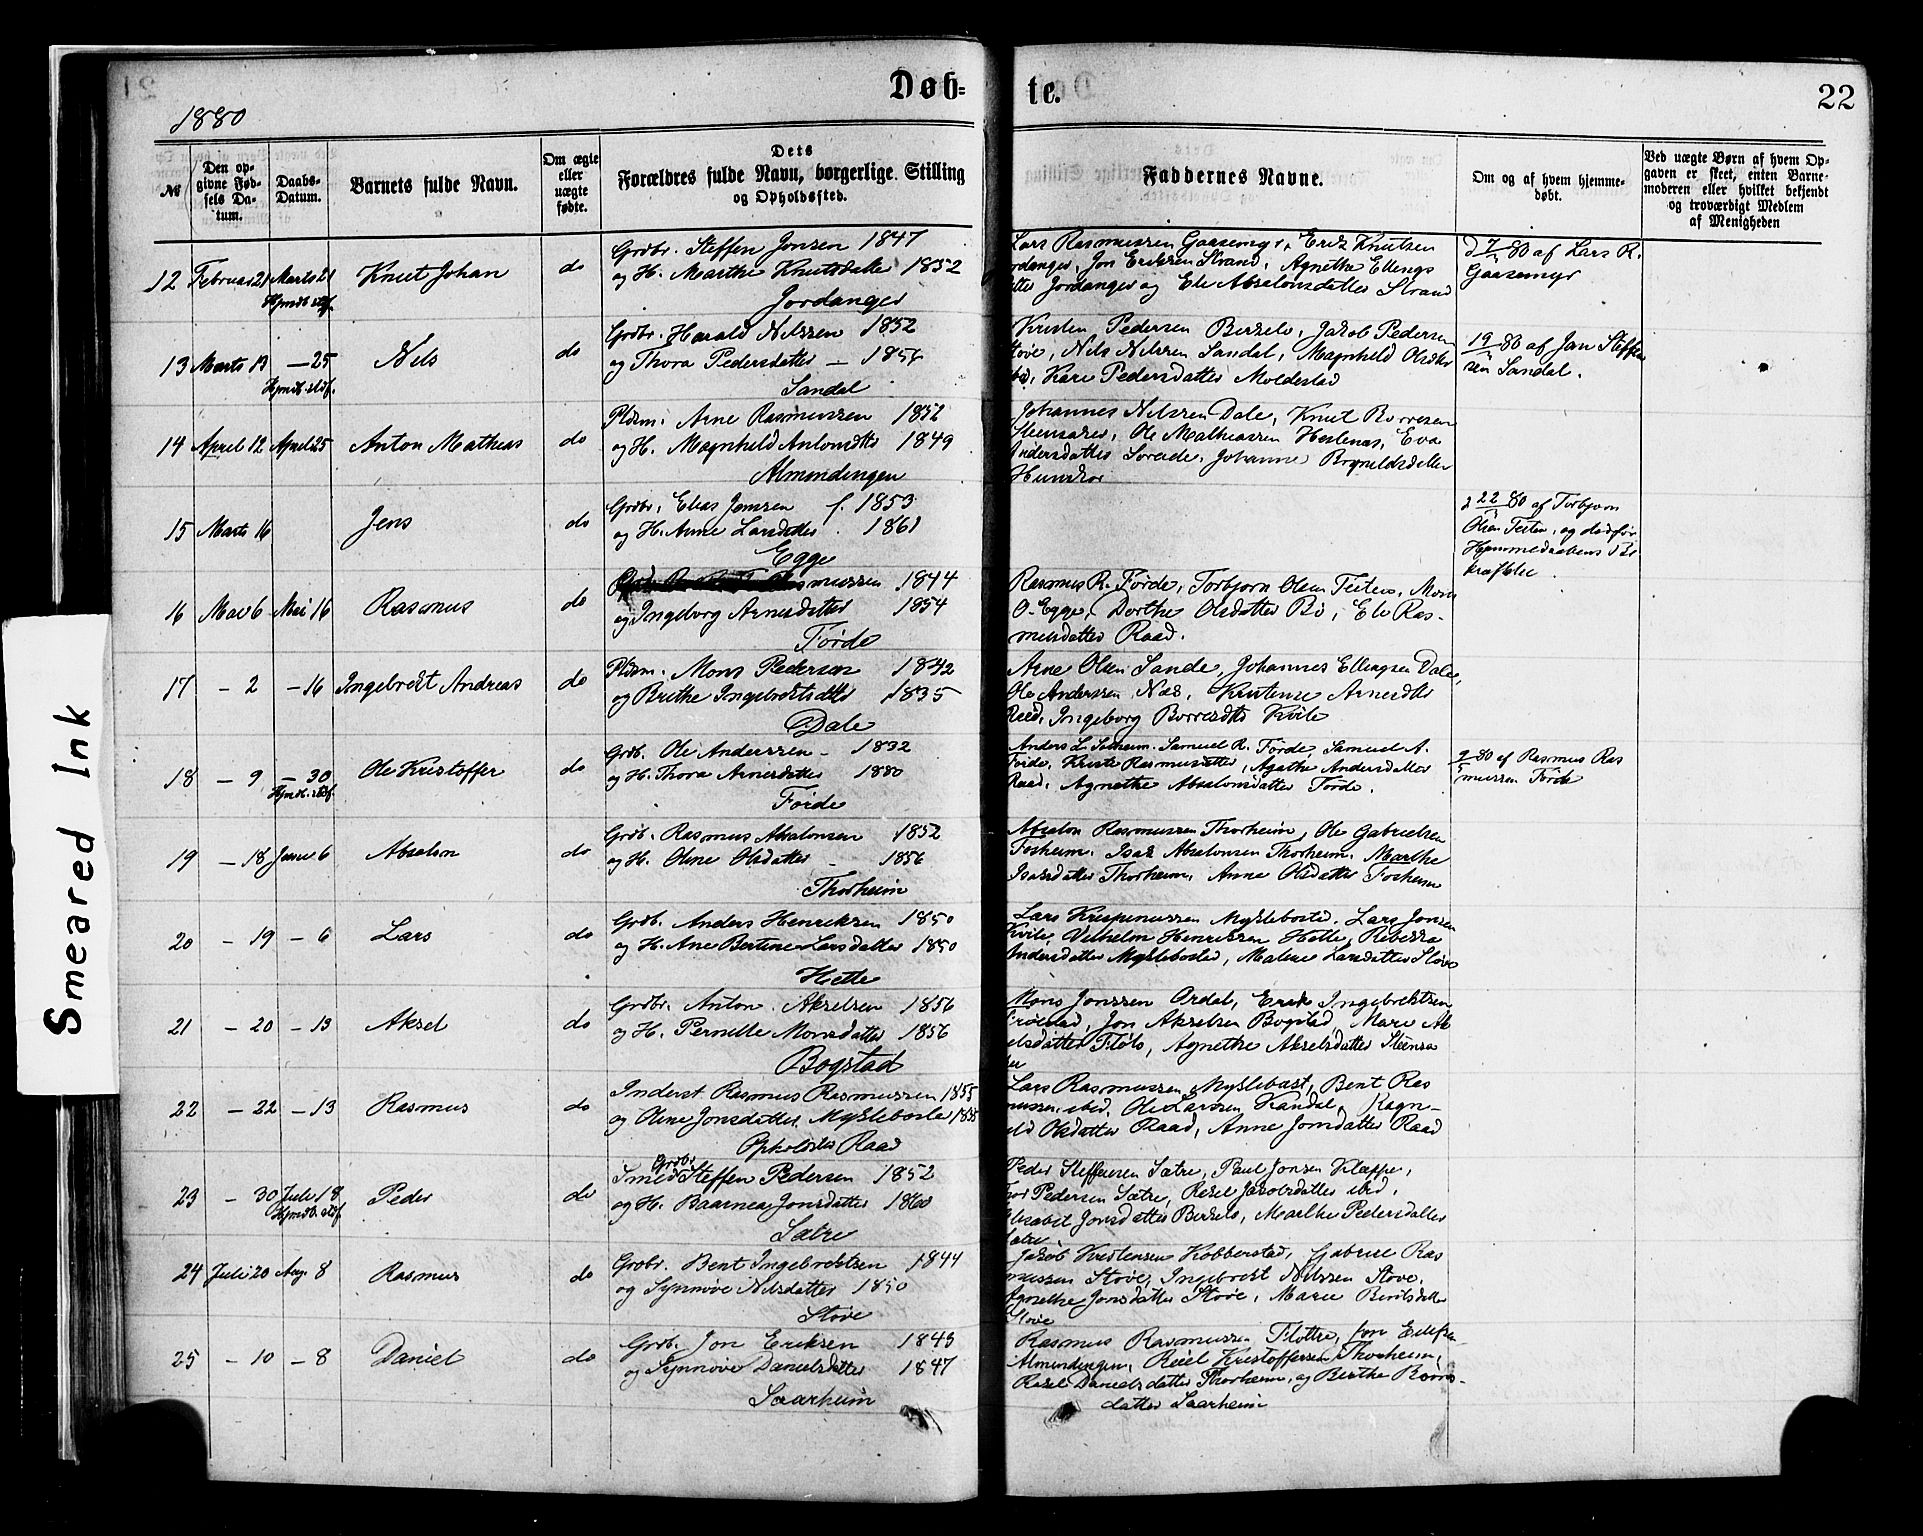 Døb=
te.
22
1880
№
Den op-
givne Fød-
sels Da-
tum.
Daabs-
Datum.
Barnets fulde Navn.
Om ægte
eller
uægte
fødte.
Dets
Forældres fulde Navn, borgerlige Stilling
og Opholdssted.
Faddernes Navne.
Om og af hvem hjemme-
døbt.
Ved uægte Børn af hvem Op-
gaven er skeet, enten Barne-
moderen eller hvilket bekjendt
og troværdigt Medlem
af Menigheden
12 Februar 21 Marts 21 Knut Johan do Grdbr. Steffen Jonsen 1847
Hjmdb. stdf. og H. Marthe Knutsdatter 1852
Jordanger
Lars Rasmussen Gaasemyr, Erik Knutsen
Jordanger, Jon Eriksen Strand, Agnethe Ellings
datter Jordanger og Ele Absalonsdatter Strand
80 af Lars R.
Gaasemyr
13 Marts 13 — 25 Nels do Grdbr. Harald Nilssen 1852
Hjmdb. stdf. og Thora Pedersdatter — 1856
Sandal
Kristen Pedersen Berkele, Jakob Pedersen
Støve, Nils Nilssen Sandal, Magnhild Olsdtr
ibd, Kari Pedersdatter Moldestad
19 80 af Jan Steffen
sen Sandal.
14 April 12 April 25 Anton Mathias do Pldsm. Arne Rasmussen 1852
og H. Magnhild Antonsdtr 1849
Almendingen
Johannes Nilssen Dale, Knut Borresen
Steensager, Ole Mathiassen Hestenas, Eva
Andersdatter Søreide, Johanne Brynildsdatter
Hunskor
15 Marts 16 Jens do Grdbr. Elias Jensen f. 1853
og H. Anne Larsdatter 1861
Egge
22 80 af Torbjorn
Olsen Feiten, og død før
Hjemmedaabens Be
kræftelse
16 Mai 6 Mai 16 Rasmus do Rasmussen 1844
og Ingeborg Arnesdatter 1854
Førde
Rasmus R. Førde, Torbjorn Olsen Feiten, Mons
O. Egge, Dorthe Olsdatter Bø, Ele Ras-
musdatter Raad.
17 — 2 — 16 Ingebrekt Andreas do Pldsm. Mons Pedersen 1842
og Brithe Ingebrektsdatter 1835
Dale
Arne Olsen Sande, Johannes Ellingsen Dale,
Ole Anderssen Næs, Kristense Arnesdtr
Reed, Ingeborg Borresdtr Kvile
18 — 9 — 30 Ole Kristoffer do Grdbr. Ole Anderssen — 1832
Hjmdb. stdf. og H. Thora Arnesdatter 1880
Førde
Anders L. Solheim, Samuel R. Førde, Samuel A.
Førde, Kristi Rasmusdatter, Agathe Andersdatter
Raad, Agnethe Absalonsdatter Førde.
80 af Rasmus Ras
mussen Førde
19 — 18 Juni 6 Absalon do Grdbr. Rasmus Absalonsen 1852
og H. Oline Olsdatter — 1856
Thorheim
Absalon Rasmussen Thorheim, Ole Gabrielsen
Fosheim, Isak Absalonsen Thorheim, Marthe
Isaksdatter Thorheim, Anne Olsdatter Fosheim
20 — 19 — 6 Lars do Grdb. Anders Henriksen 1850
og H. Ane Bertine Larsdatter 1850
Hette
Lars Krispinussen Myklebostad, Lars Jonsen
Kvile, Vilhelm Henriksen Hette, Rebekka
Andersdatter Myklebostad, Malene Larsdatter Støve
21 — 20 — 13 Aksel do Grdbr. Anton Akselsen 1856
og H. Pernille Monsdatter 1856
Bogstad
Mons Jonssen Ordal, Erik Ingebrektsen
Trøestad, Jon Akselsen Bogstad, Mari Ak
selsdatter Fløts, Agnethe Akselsdatter Steensa
ker
22 — 22 — 13 Rasmus do Inderst Rasmus Rasmussen 1855
og Oline Jonsdatter, Myklebostad 1855
Opholdster Raad
Lars Rasmussen Myklebust, Bent Ras
mussen ibid, Ole Larssen Kandal, Ragn-
hild Olsdatter Raad, Anne Jonsdatter Raad
23 — 30 Juli 18 Peder do Grdbr
Smed Steffen Pedersen 1852
Hjmdb. stdf. og H. Baarnea Jonsdatter 1860
Sætre
Peder Steffensen Sætre, Paul Jonsen Klæppe,
Thor Pedersen Sætre, Rakel Jakobsdatter ibid,
Elisabet Jonsdatter Berkele, Marthe Pedersdatter
Sætre
24 Juli 20 Aug. 8 Rasmus do Grdbr. Bent Ingebrektsen 1844
og Synnøve Nilsdatter 1850
Støve
Jakob Kristensen Kobberstad, Gabriel Ras
mussen Støve, Ingebrekt Nilssen Støve,
Agnethe Jonsdatter Støve, Marie Bentsdatter
Støve
25 — 10 — 8 Daniel do Grdb. Jon Eriksen 1843
og Synnøve Danielsdatter 1847
Saarheim
Rasmus Rasmussen Flottre, Jon
Almendingen, Reiel Kristoffersen Thorheim,
Rakel Danielsdatter Thorheim, og Berthe
datter Saarheim
Smeared Ink